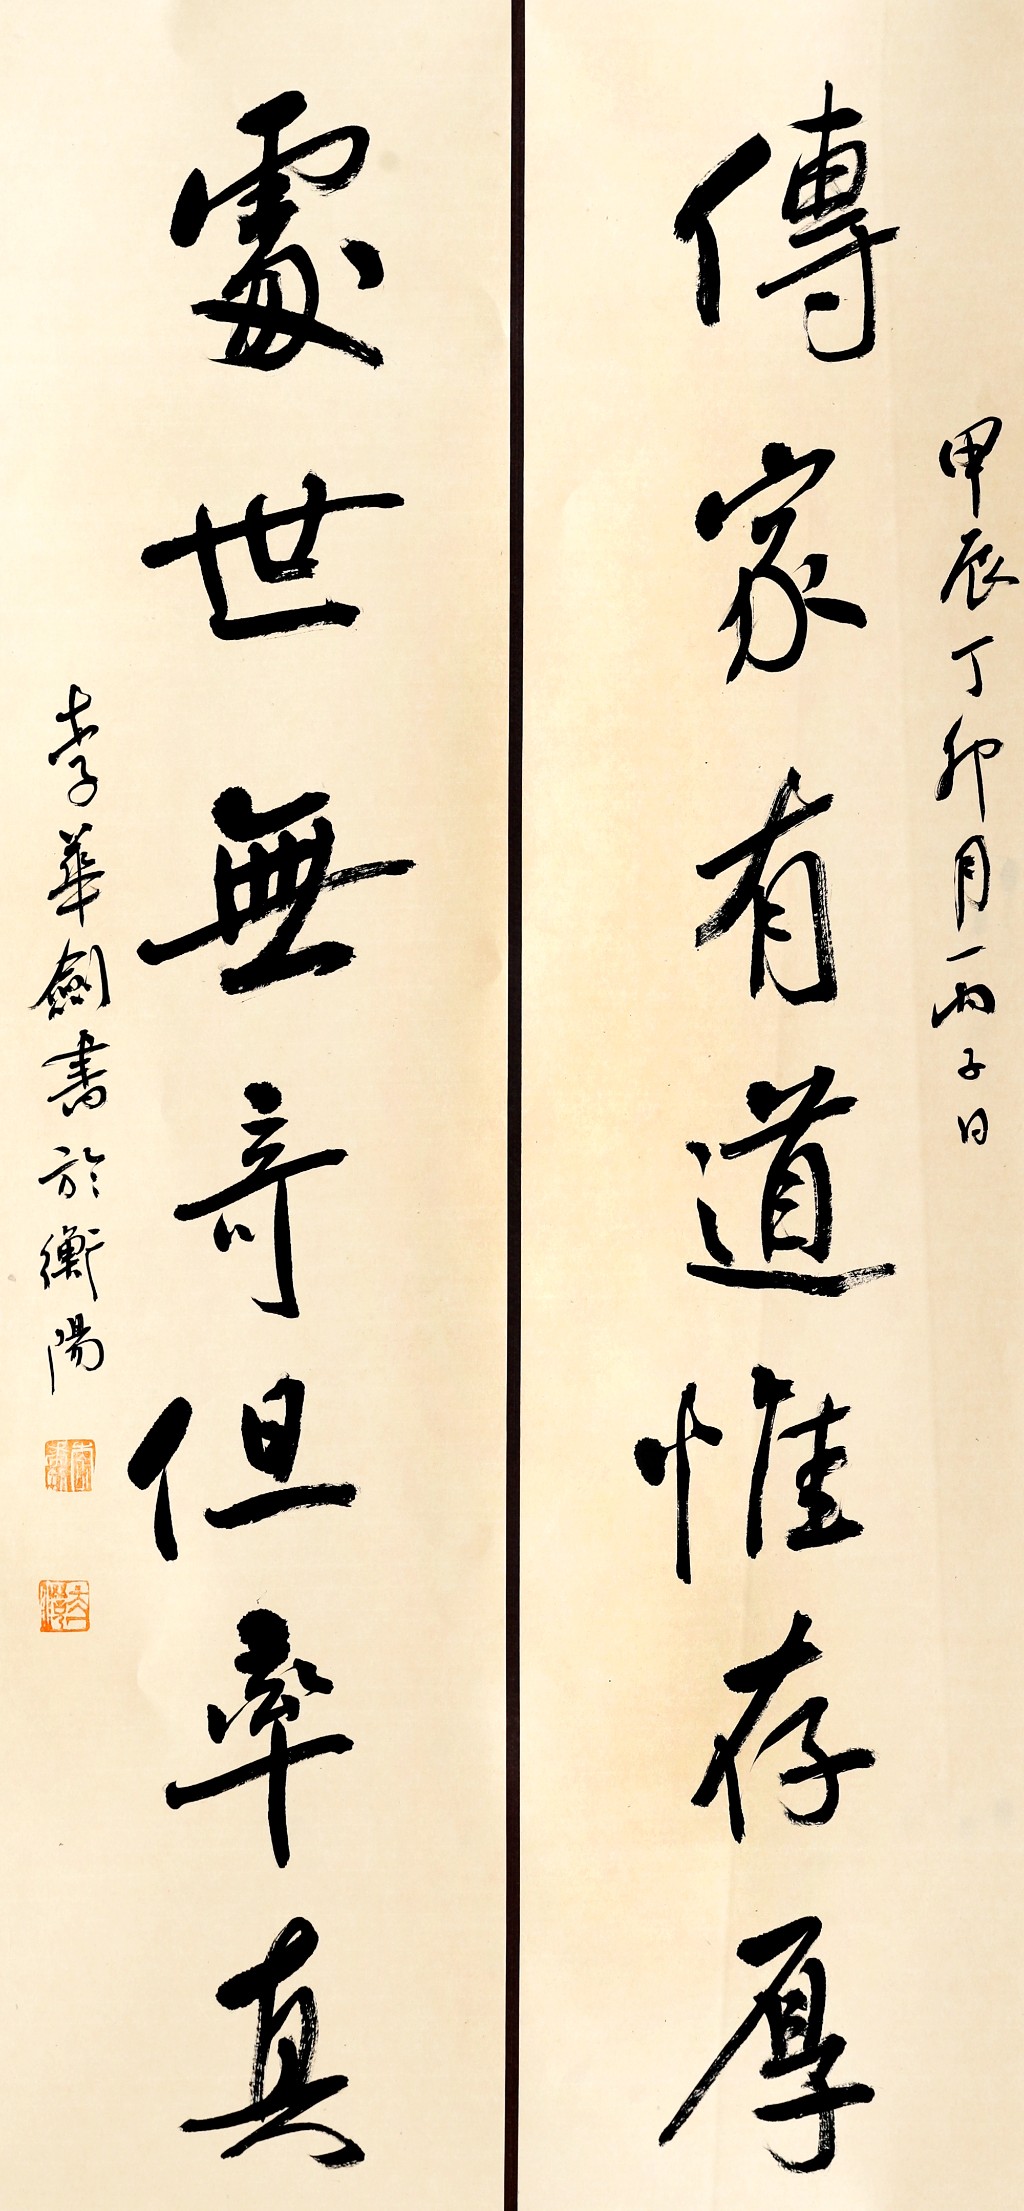 甲辰丁卯月丙子日
傳家有道惟存厚
處世無奇但率真
李華劍書於衡陽